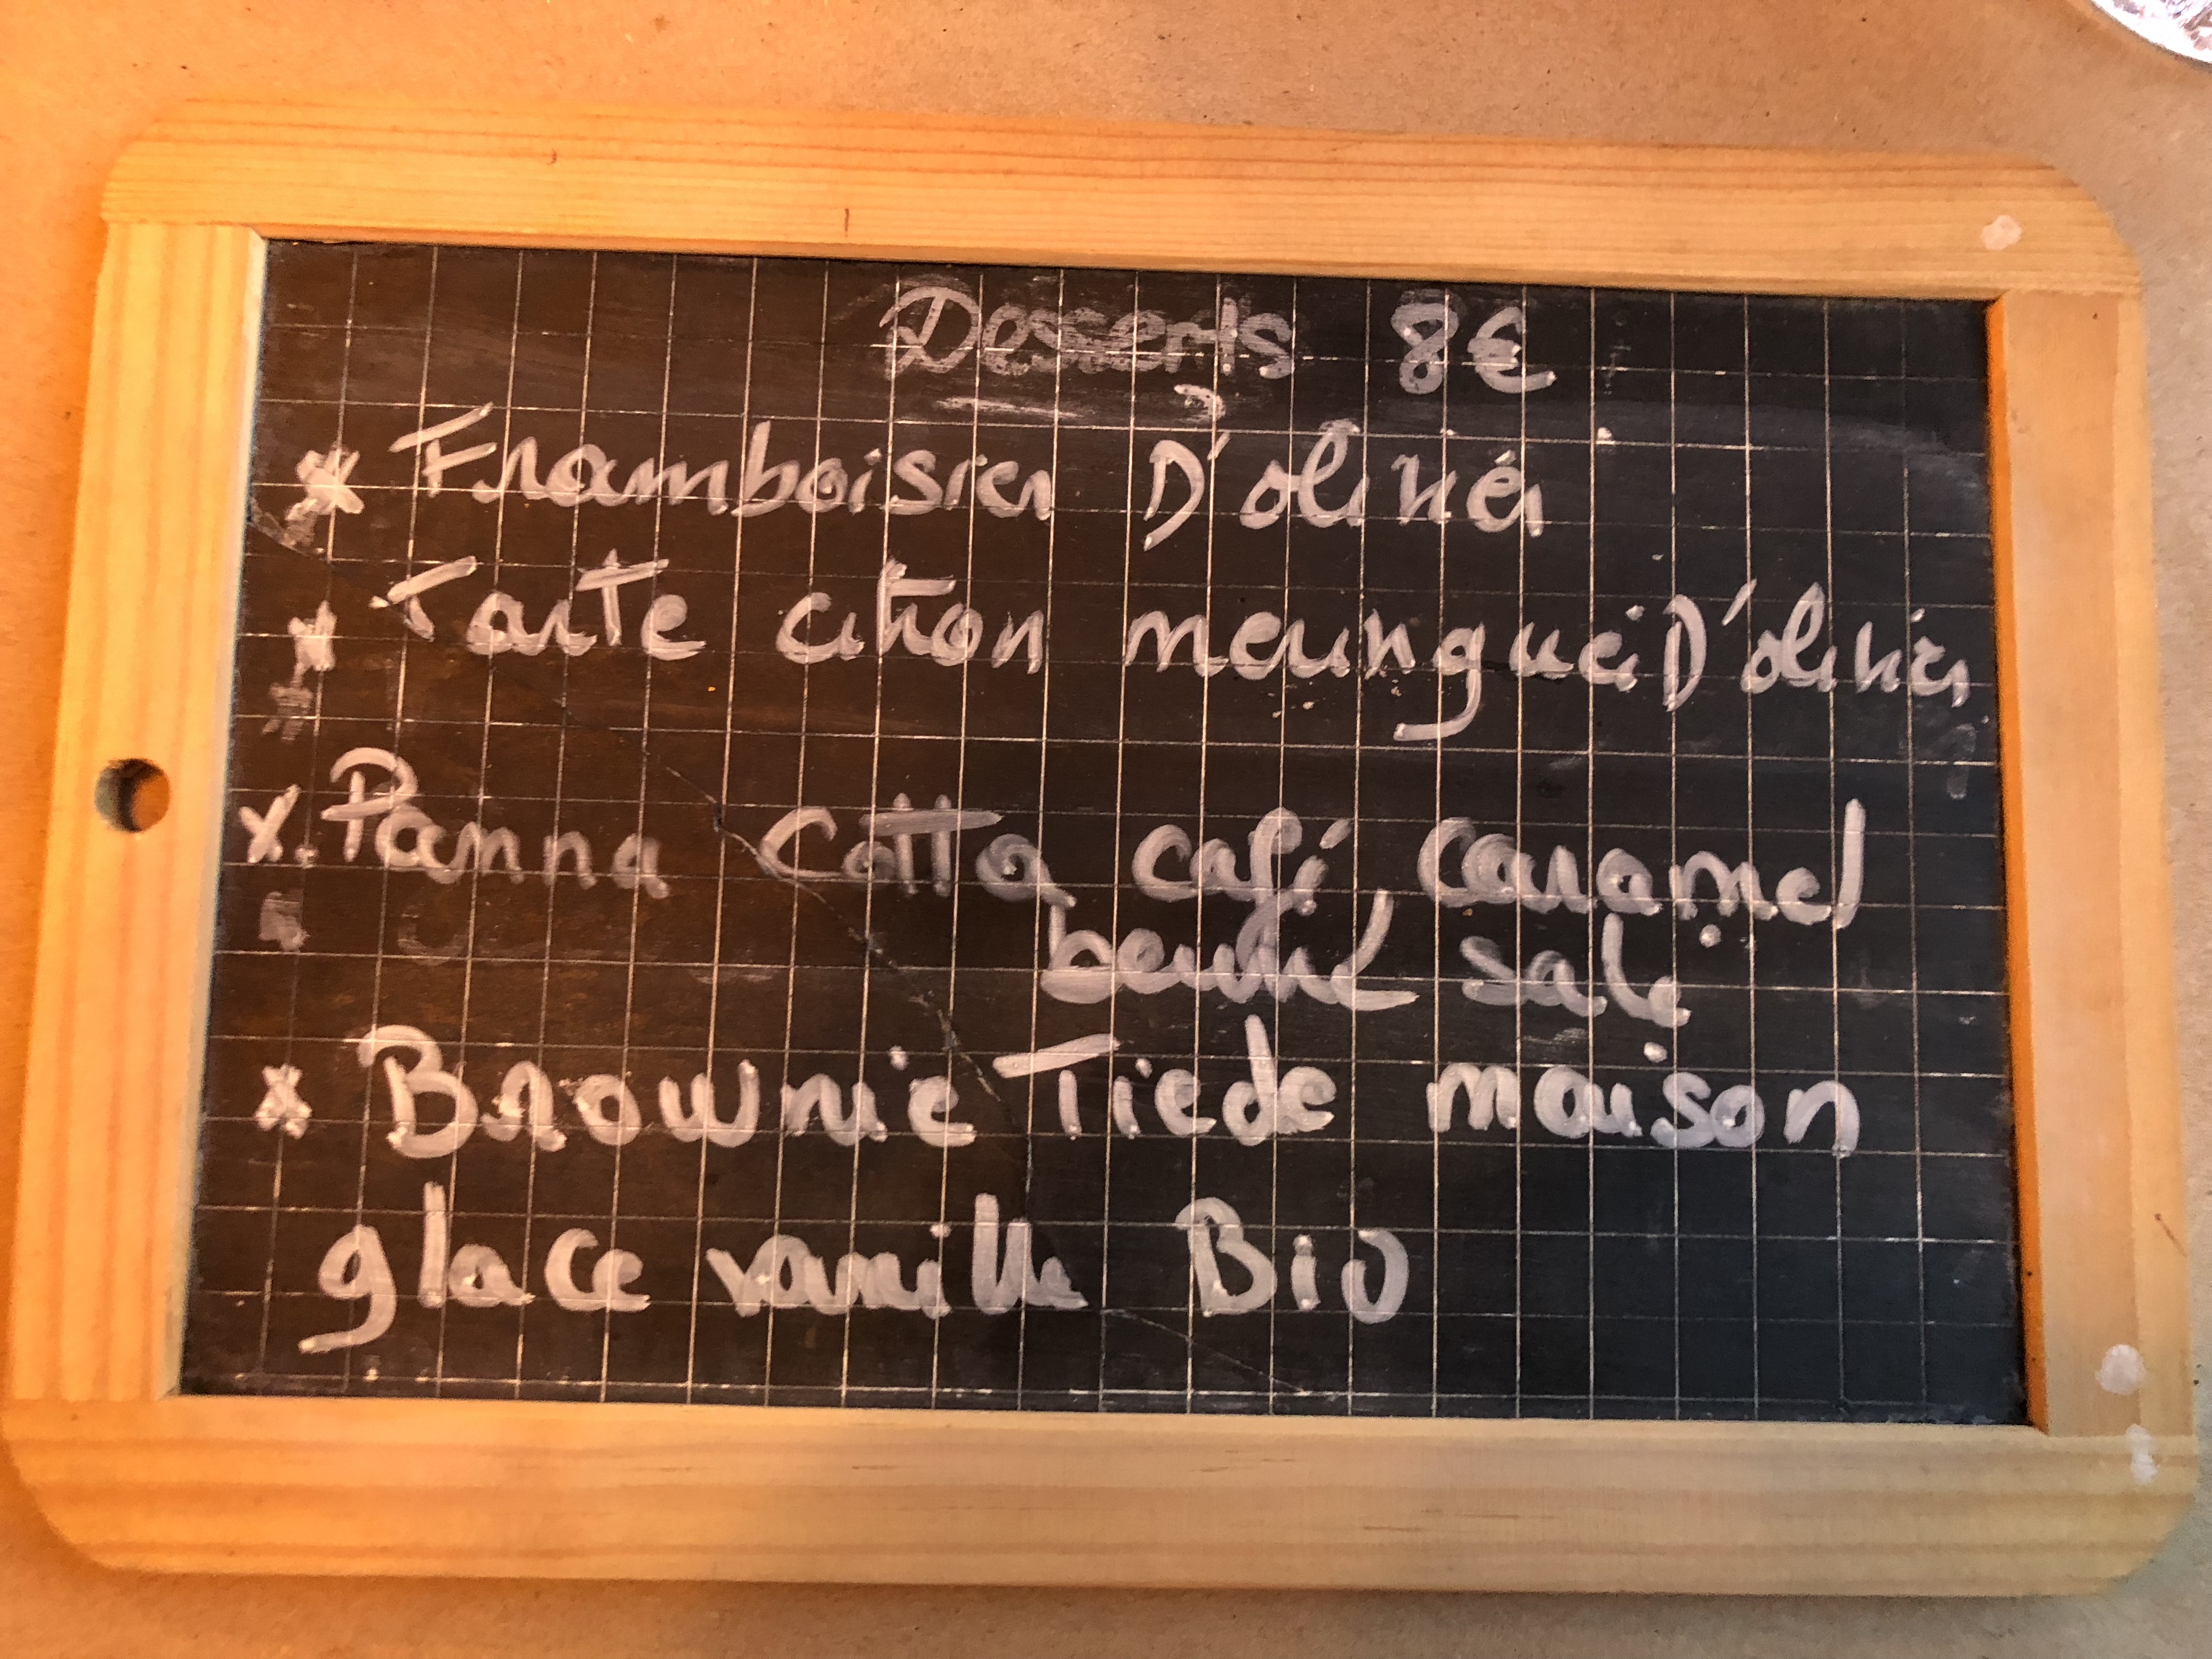 Desserts 8€
* Framboisier D'olivier
* Tarte citron meringuée D'olivier
x. Panna Cotta café, Caramel
beurre salé
* Brownie Tiede maison
glace vanille Bio